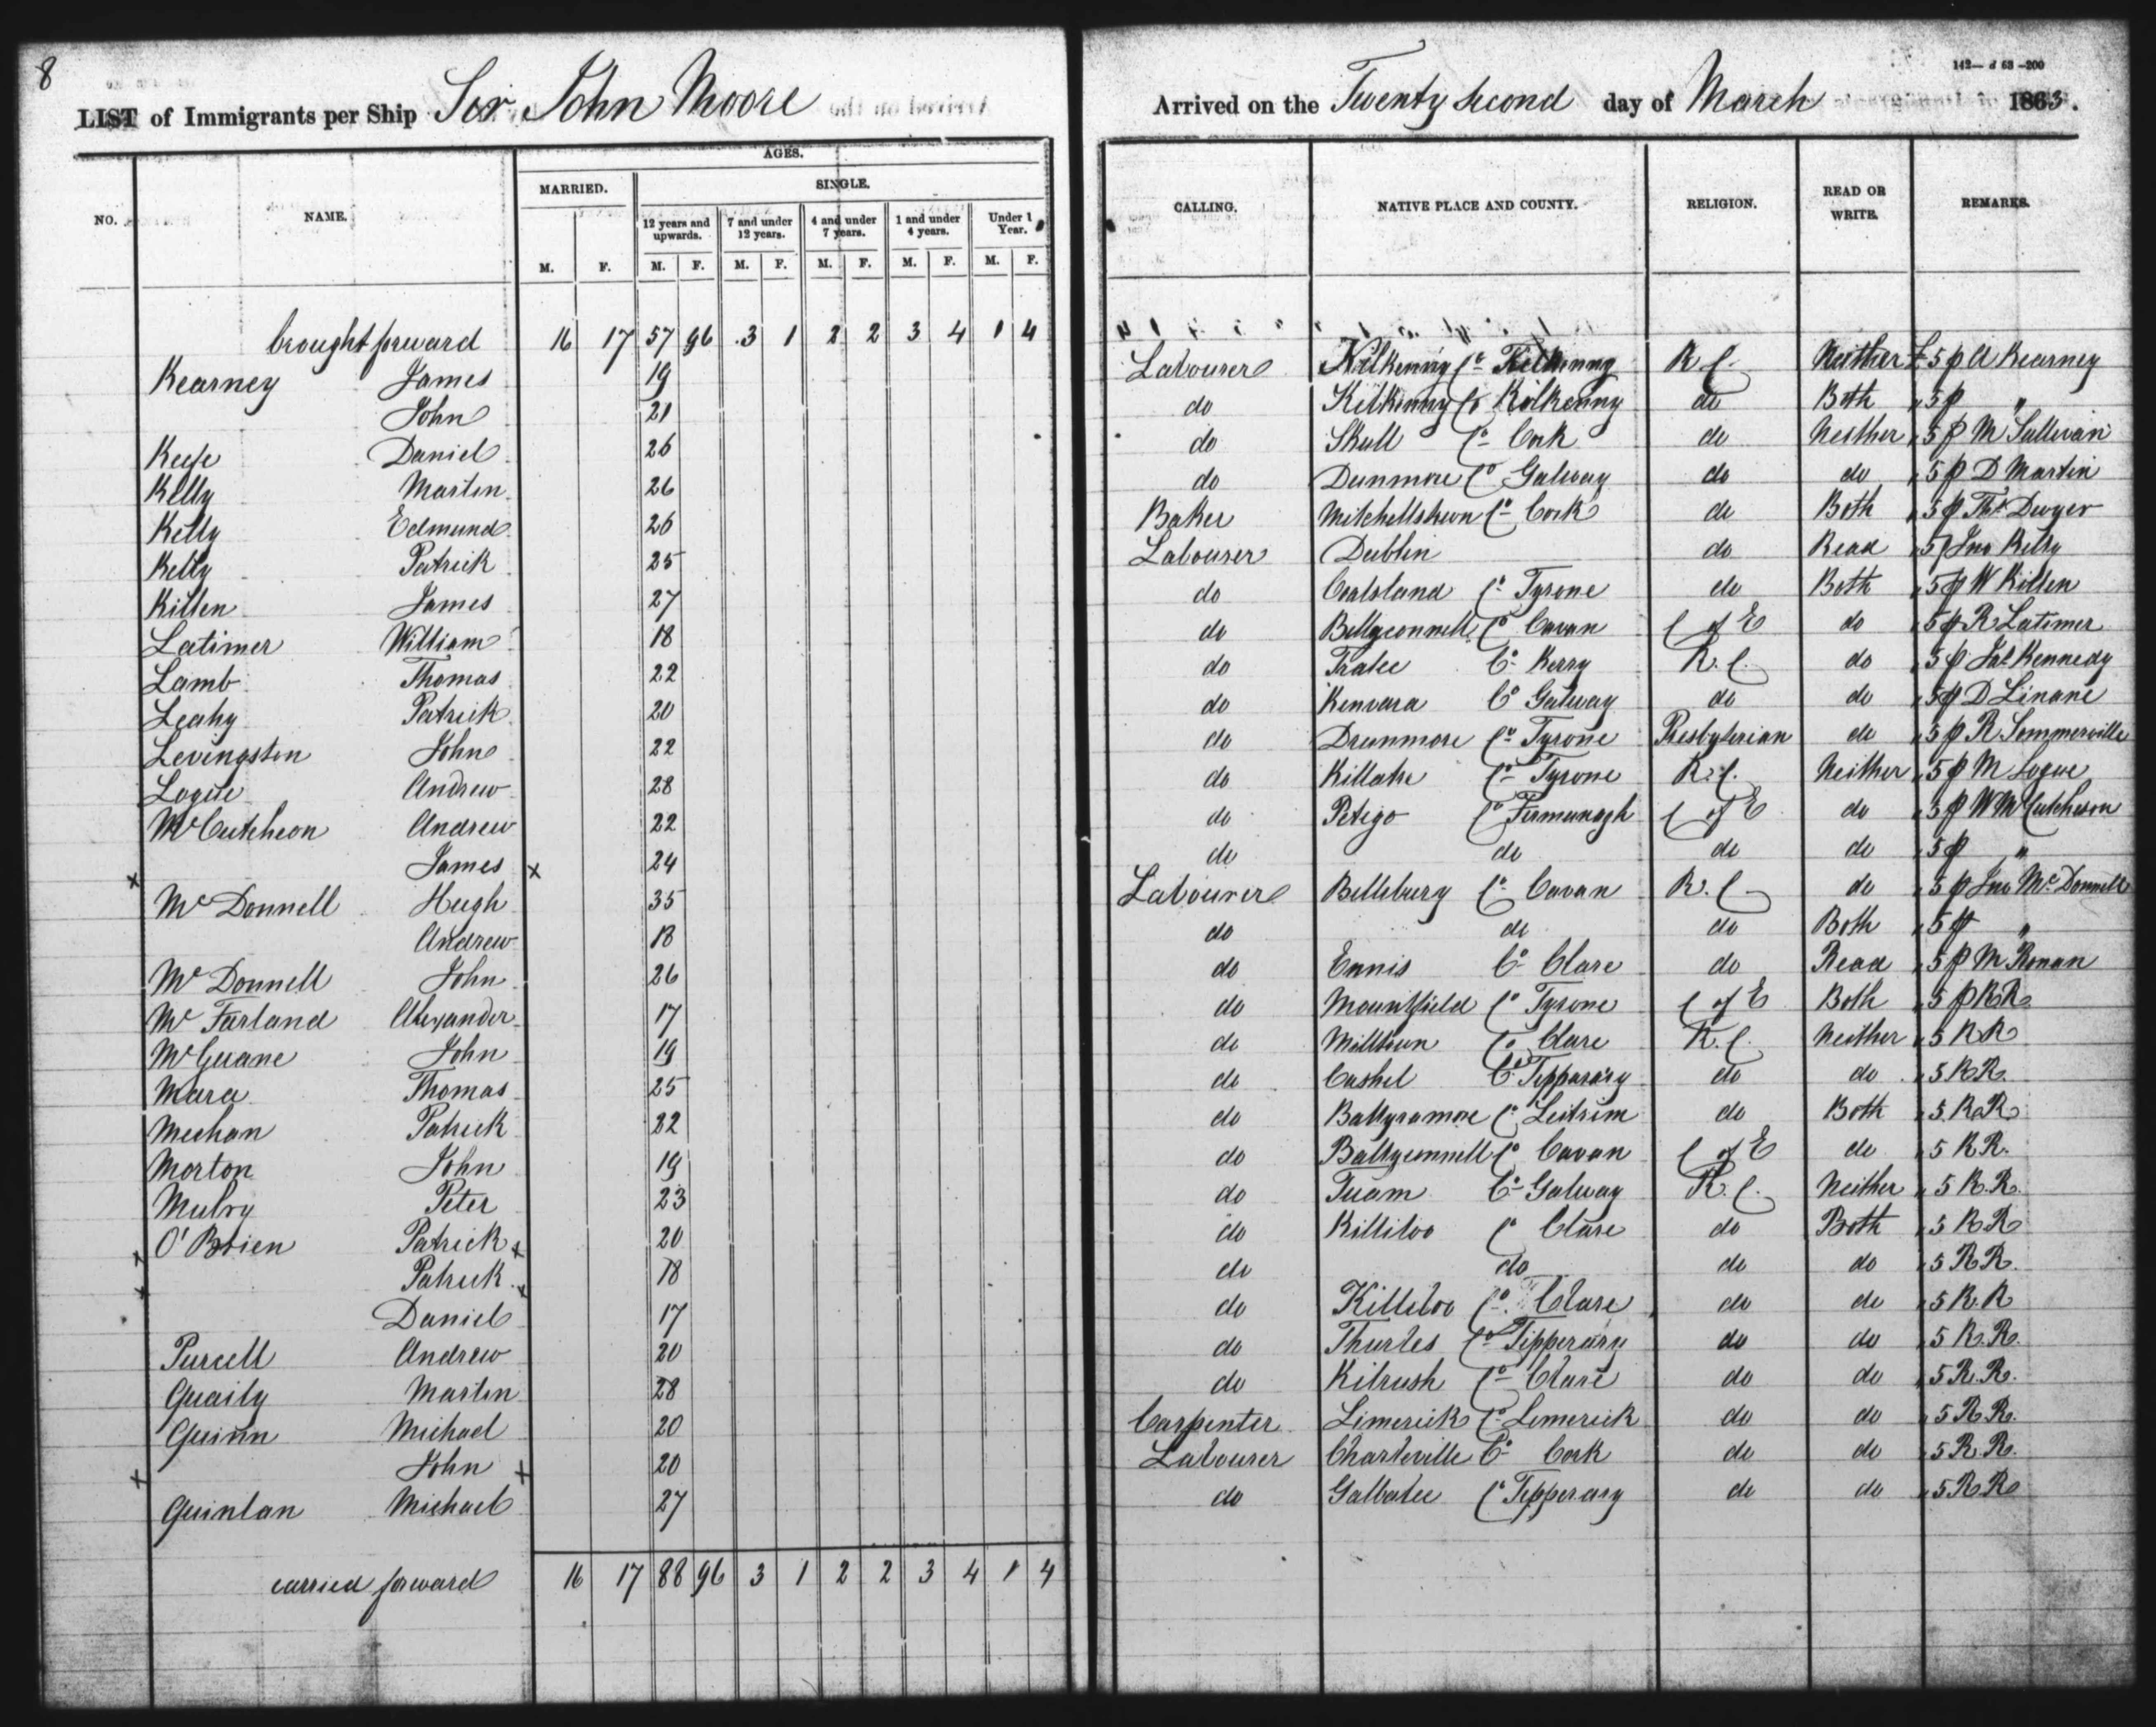 8
LIST of Immigrants per Ship Sir John Moore Arrived on the Twenty Second day of March 1863.
142— d 63 —200
NO. NAME. AGES. CALLING. NATIVE PLACE AND COUNTY. RELIGION. READ OR WRITE. REMARKS.
MARRIED. SINGLE.
12 years and upwards. 7 and under 12 years. 4 and under 7 years. 1 and under 4 years. Under 1 Year.
M. F. M. F. M. F. M. F. M. F. M. F.
brought forward 16 17 57 96 3 1 2 2 3 4 1 4
Kearney James 19 Labourer Kilkenny Co Kilkenny R C. Neither £5 p A Kearney
John 21 do Kilkenny Co Kilkenny do Both " 5 p "
Keefe Daniel 26 do Skull Co Cork do Neither " 5 p M Sullivan
Kelly Martin 26 do Dunmore Co Galway do do " 5 p D Martin
Kelly Edmund 26 Baker Mitchellstown Co Cork do Both " 5 p Ths Dwyer
Kelly Patrick 25 Labourer Dublin do Read " 5 p Jno Kelly
Killen James 27 do Coalsland Co Tyrone do Both " 5 p W Killen
Latimer William 18 do Ballyconnell Co Cavan C of E do " 5 p R Latimer
Lamb Thomas 22 do Tralee Co Kerry R. C. do " 5 p Jas Kennedy
Leahy Patrick 20 do Kenvara Co Galway do do " 5 p D Linane
Levingston John 22 do Drummore Co Tyrone Presbyterian do " 5 p R Sommerville
Logue Andrew 28 do Killater Co Tyrone R. C. Neither " 5 p M Logue
McCutcheon Andrew 22 do Petigo Co Firmanagh C of E do " 5 p W McCutcheon
x James x 24 do do do do " 5 p "
McDonnell Hugh 35 Labourer Bellebury Co Cavan R. C. do " 5 p Jno McDonnell
Andrew 18 do do do Both " 5 p "
McDonnell John 26 do Ennis Co Clare do Read " 5 p M Ronan
McFarland Alexander 17 do Mountfield Co Tyrone C of E Both " 5 p R R
McGuane John 19 do Milltown Co Clare R. C. Neither " 5 R R
Mara Thomas 25 do Cashel Co Tipparary do do " 5 R R.
Mechan Patrick 22 do Ballynamore Co Leitrim do Both " 5 R R
Morton John 19 do Ballyconnell Co Cavan C of E do " 5 R R.
Mulry Peter 23 do Tuam Co Galway R. C. Neither " 5 R. R.
x O'Brien Patrick x 20 do Killiloo Co Clare do Both " 5 R R
x Patrick x 18 do do do do " 5 R R.
Daniel 17 do Killeloo Co Clare do do " 5 R. R
Purcell Andrew 20 do Thurles Co Tipperary do do " 5 R. R.
Quaily Martin 28 do Kilrush Co Clare do do " 5 R. R.
Quinn Michael 20 Carpenter Limerick Co Limerick do do " 5 R R.
x John x 20 Labourer Charleville Co Cork do do " 5 R R.
Quinlan Michael 27 do Galbalee Co Tipperary do do " 5 R R
carried forward 16 17 88 96 3 1 2 2 3 4 1 4